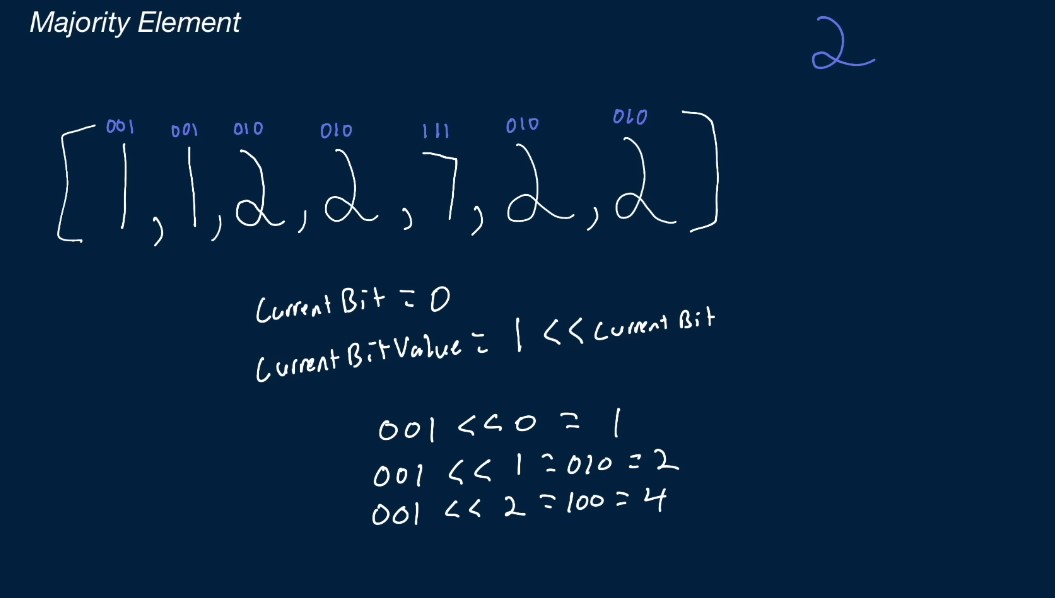 Majority Element
2
001 001 010 010 111 010 010
[1, 1, 2, 2, 7, 2, 2]
CurrentBit = 0
CurrentBitValue = 1 << CurrentBit
001 << 0 = 1
001 << 1 = 010 = 2
001 << 2 = 100 = 4